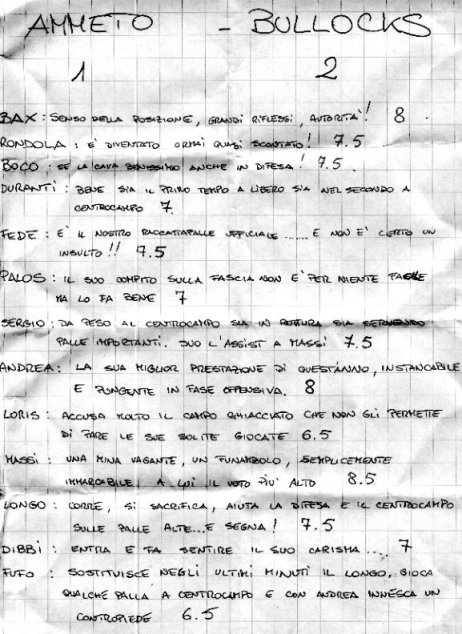 AMMETO - BULLOCKS
1 2
BAX: SENSO DELLA POSIZIONE, GRANDI RIFLESSI, AUTORITA'! 8
RONDOLA: E' DIVENTATO ORMAI QUASI SCONTATO! 7.5
BOCO: SE LA CAVA BENISSIMO ANCHE IN DIFESA! 7.5.
DURANTI: BENE SIA IL PRIMO TEMPO A LIBERO SIA NEL SECONDO A
CENTROCAMPO 7
FEDE: E' IL NOSTRO RACCATTAPALLE UFFICIALE...... E NON E' CERTO UN
INSULTO!! 7.5
PALOS: IL SUO COMPITO SULLA FASCIA NON E' PER NIENTE FACILE
MA LO FA BENE 7
SERGIO: DA PESO AL CENTROCAMPO SIA IN ROTTURA SIA
PALLE IMPORTANTI. SUO L'ASSIST A MASSI 7.5
ANDREA: LA SUA MIGLIOR PRESTAZIONE DI QUEST'ANNO, INSTANCABILE
E PUNGENTE IN FASE OFFENSIVA. 8
LORIS: ACCUSA MOLTO IL CAMPO GHIACCIATO CHE NON GLI PERMETTE
DI FARE LE SUE SOLITE GIOCATE 6.5
MASSI: UNA MINA VAGANTE, UN FUNAMBOLO, SEMPLICEMENTE
IMMARCABILE! A LUI IL VOTO PIU' ALTO 8.5
LONGO: CORRE, SI SACRIFICA, AIUTA LA DIFESA E IL CENTROCAMPO
SULLE PALLE ALTE...E SEGNA! 7.5
DIBBI: ENTRA E FA SENTIRE IL SUO CARISMA.... 7
FUFO: SOSTITUISCE NEGLI ULTIMI MINUTI IL LONGO, GIOCA
QUALCHE PALLA A CENTROCAMPO E CON ANDREA INNESCA UN
CONTROPIEDE 6.5